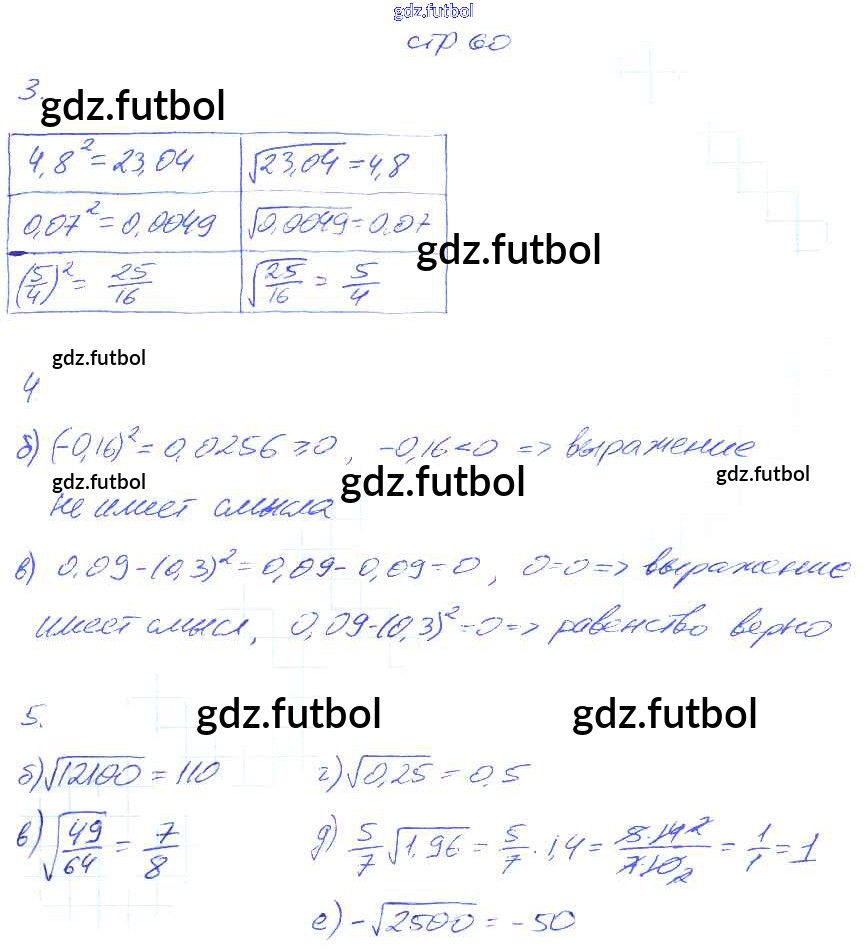 gdz.futbol
стр 60
3.
gdz.futbol
4,8² = 23,04 √23,04 = 4,8
0,07² = 0,0049 √0,0049 = 0,07
gdz.futbol
(5/4)² = 25/16 √25/16 = 5/4
gdz.futbol
4
б) (-0,16)² = 0,0256 ≥ 0, -0,16 < 0 => выражение
gdz.futbol gdz.futbol gdz.futbol
не имеет смысла
в) 0,09-(0,3)² = 0,09 - 0,09 = 0, 0=0 => выражение
имеет смысл, 0,09-(0,3)² = 0 => равенство верно
5. gdz.futbol gdz.futbol
б) √12100 = 110 г) √0,25 = 0,5
в) √49/64 = 7/8 д) 5/7 √1,96 = 5/7 · 1,4 = 5·14 2/7·10 2 = 1/1 = 1
е) -√2500 = -50